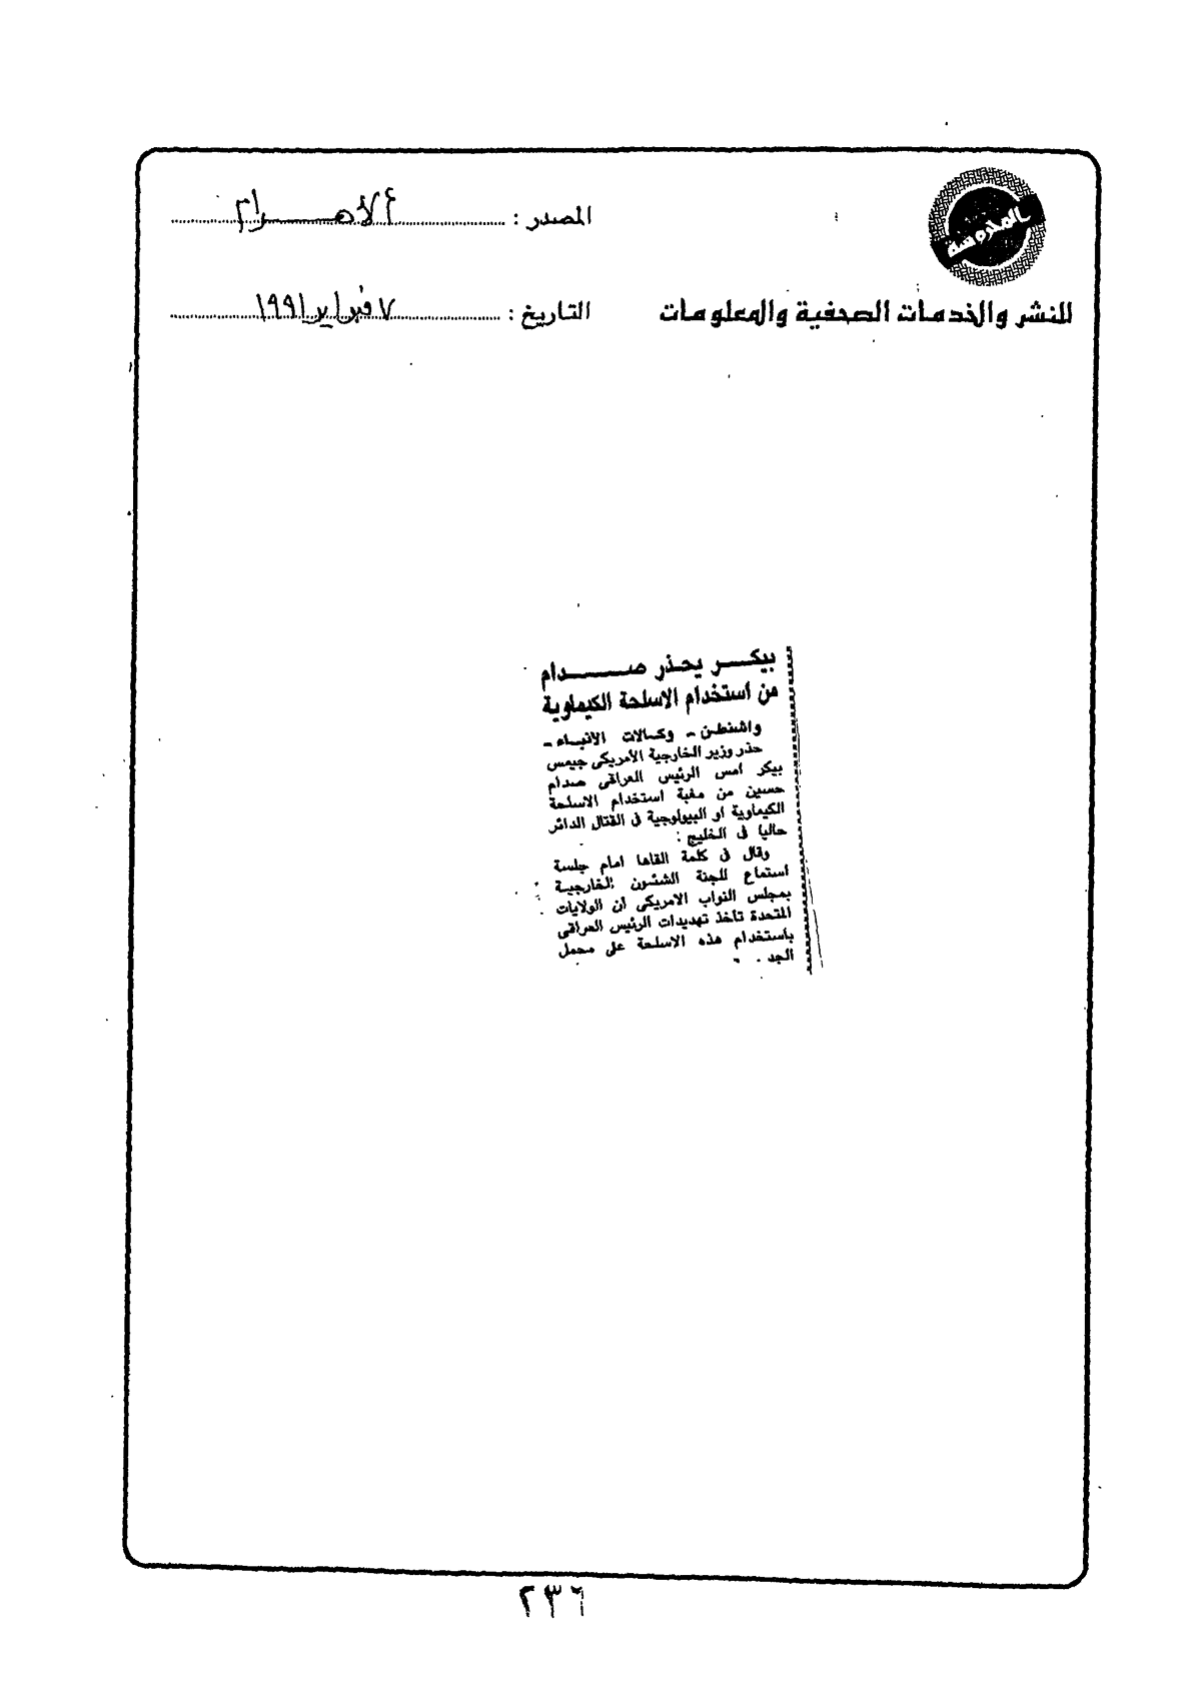 المحروسة
للنشر والخدمات الصحفية والمعلومات
المصدر : الأهرام
التاريخ : ٧ فبراير ١٩٩١
بيكـــر يحذر صـــــدام
من استخدام الاسلحة الكيماوية
واشنطن - وكالات الأنباء -
حذر وزير الخارجية الأمريكى جيمس
بيكر امس الرئيس العراقى صدام
حسين من مغبة استخدام الاسلحة
الكيماوية او البيولوجية فى القتال الدائر
حاليا فى الخليج :
وقال فى كلمة القاها امام جلسة
استماع للجنة الشئون الخارجية
بمجلس النواب الامريكى ان الولايات
المتحدة تأخذ تهديدات الرئيس العراقى
باستخدام هذه الاسلحة على محمل
الجد .
٢٣٦